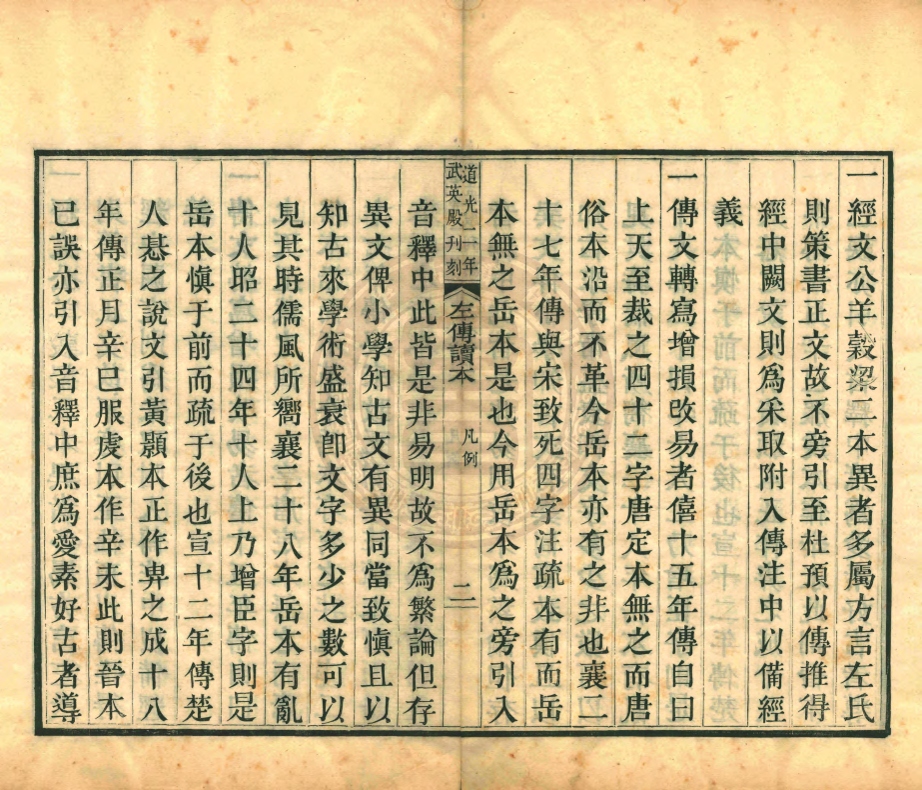 一經文公羊穀梁二本異者多屬方言左氏
則策書正文故不旁引至杜預以傳推得
經中闕文則爲采取附入傳注中以備經
義
一傳文轉寫增損改易者僖十五年傳自曰
上天至裁之四十二字唐定本無之而唐
俗本沿而不革今岳本亦有之非也襄二
十七年傳與宋致死四字注疏本有而岳
本無之岳本是也今用岳本爲之旁引入
道光二年
武英殿刊刻
左傳讀本
凡例
二
音釋中此皆是非易明故不爲繁論但存
異文俾小學知古文有異同當致慎且以
知古來學術盛衰卽文字多少之數可以
見其時儒風所嚮襄二十八年岳本有亂
十人昭二十四年十人上乃增臣字則是
岳本慎于前而疏于後也宣十二年傳楚
人惎之說文引黃顥本正作畁之成十八
年傳正月辛巳服虔本作辛未此則晉本
已誤亦引入音釋中庶爲愛素好古者導